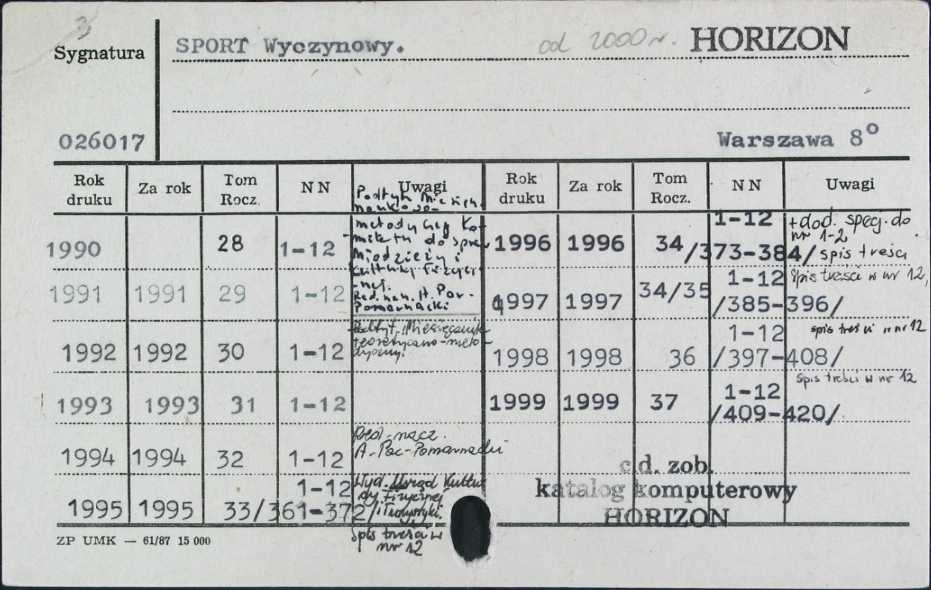 3
Sygnatura
SPORT Wyczynowy. od 2000 r. HORIZON
026017
Warszawa 8°
Rok druku Za rok Tom Rocz. NN Uwagi Rok druku Za rok Tom Rocz. NN Uwagi
1990 28 1-12
Podtyt. Miesięcz.
naukowo-
metodyczny Ko-
mitetu do spraw
Młodzieży i
Kultury Fizycz-
nej.
Red. nacz. H. Pac-
Pomarnacki
1991 1991 29 1-12
1992 1992 30 1-12
Podtyt. "Miesięcznik
teoretyczno-meto-
dyczny"
1993 1993 31 1-12
1994 1994 32 1-12
Red. nacz.
A-Pac-Pomarnacki
1995 1995 33/361-372/
1-12
Wyd. Urząd Kultu-
ry Fizycznej
i Turystyki.
Spis treści w
nr 12
1996 1996 34/373-384/
1-12
+dod. specj. do
nr 1-2
spis treści
1997 1997 34/35 1-12 Spis treści w nr 12,
/385-396/
1998 1998 36 1-12 spis treści w nr 12
/397-408/
1999 1999 37 1-12 Spis treści w nr 12
/409-420/
c.d. zob.
katalog komputerowy
HORIZON
ZP UMK — 61/87 15 000